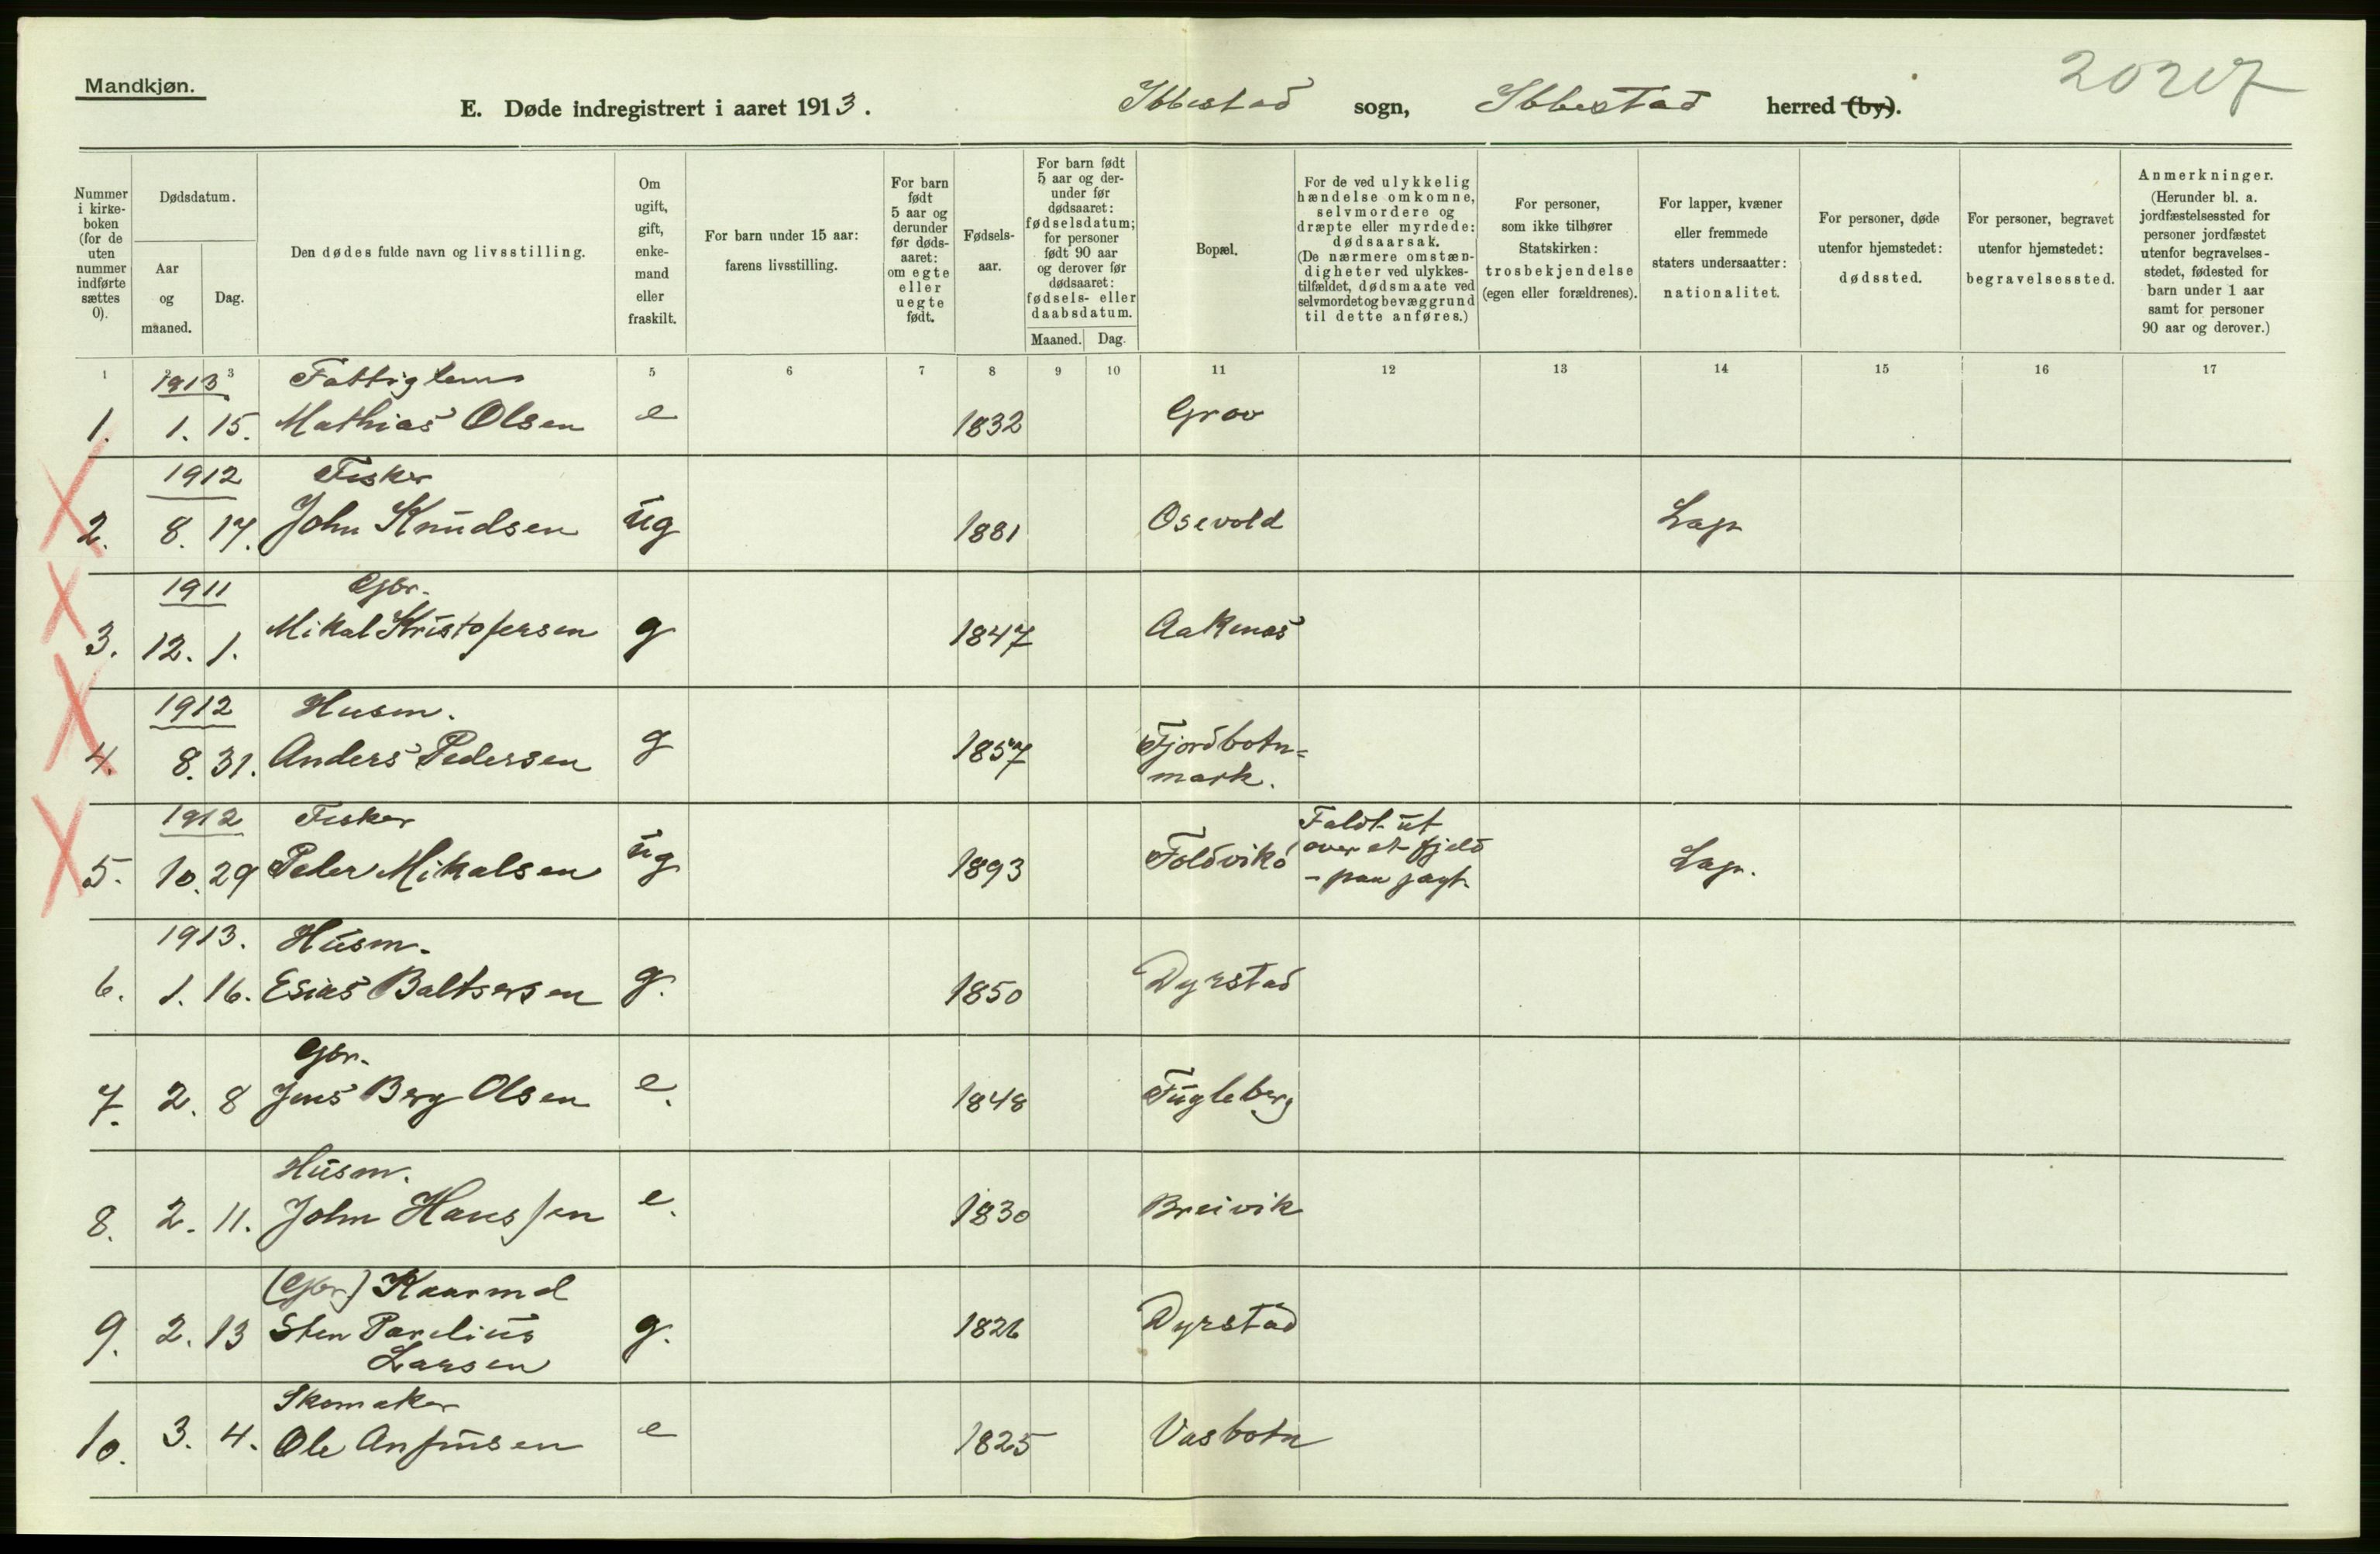 Mandkjøn.
E. Døde indregistrert i aaret 1913. Ibbestad sogn, Ibbestad herred (by).
20207
Nummer i kirke-boken (for de uten nummer indførte sættes 0).
Dødsdatum.
Aar og maaned.
Dag.
Den dødes fulde navn og livsstilling.
Om ugift, gift, enke-mand eller fraskilt.
For barn under 15 aar: farens livsstilling.
For barn født 5 aar og derunder før døds-aaret: om egte eller uegte født.
Fødsels-aar.
For barn født 5 aar og der-under før dødsaaret: fødselsdatum; for personer født 90 aar og derover før dødsaaret: fødsels- eller daabsdatum.
Maaned. Dag.
Bopæl.
For de ved ulykkelig hændelse omkomne, selvmordere og dræpte eller myrdede: dødsaarsak. (De nærmere omstæn-digheter ved ulykkes-tilfældet, dødsmaate ved selvmordet og bevæggrund til dette anføres.)
For personer, som ikke tilhører Statskirken: trosbekjendelse (egen eller forældrenes).
For lapper, kvæner eller fremmede staters undersaatter: nationalitet.
For personer, døde utenfor hjemstedet: dødssted.
For personer, begravet utenfor hjemstedet: begravelsessted.
Anmerkninger. (Herunder bl. a. jordfæstelsessted for personer jordfæstet utenfor begravelses-stedet, fødested for barn under 1 aar samt for personer 90 aar og derover.)
1 3 5 6 7 8 9 10 11 12 13 14 15 16 17
1913 Fattiglem
1. 1. 15. Mathias Olsen e 1832 Grov
1912 Fisker
2. 8. 17. John Knudsen ug 1881 Osevold Lap
1911 Gbr.
3. 12. 1. Mikal Kristofersen g 1847 Aaknes
1912 Husm.
4. 8. 31. Anders Pedersen g 1857 Fjordbotn=
mark.
1912 Fisker Faldt ut
5. 10. 29 Peder Mikalsen ug 1893 Foldvik over et fjeld Lap.
- paa jagt
1913. Husm.
6. 1. 16. Esias Baltsersen g. 1850 Dyrstad
Gbr.
7. 2. 8 Jens Berg Olsen e. 1848 Fugleberg
Husm.
8. 2. 11. John Hanssen e. 1830 Breivik
(Gbr) Kaarmd
9. 2. 13 Sten Parelius g. 1826 Dyrstad
Larsen
Skomaker
10. 3. 4. Ole Anfinsen e 1825 Vasbotn